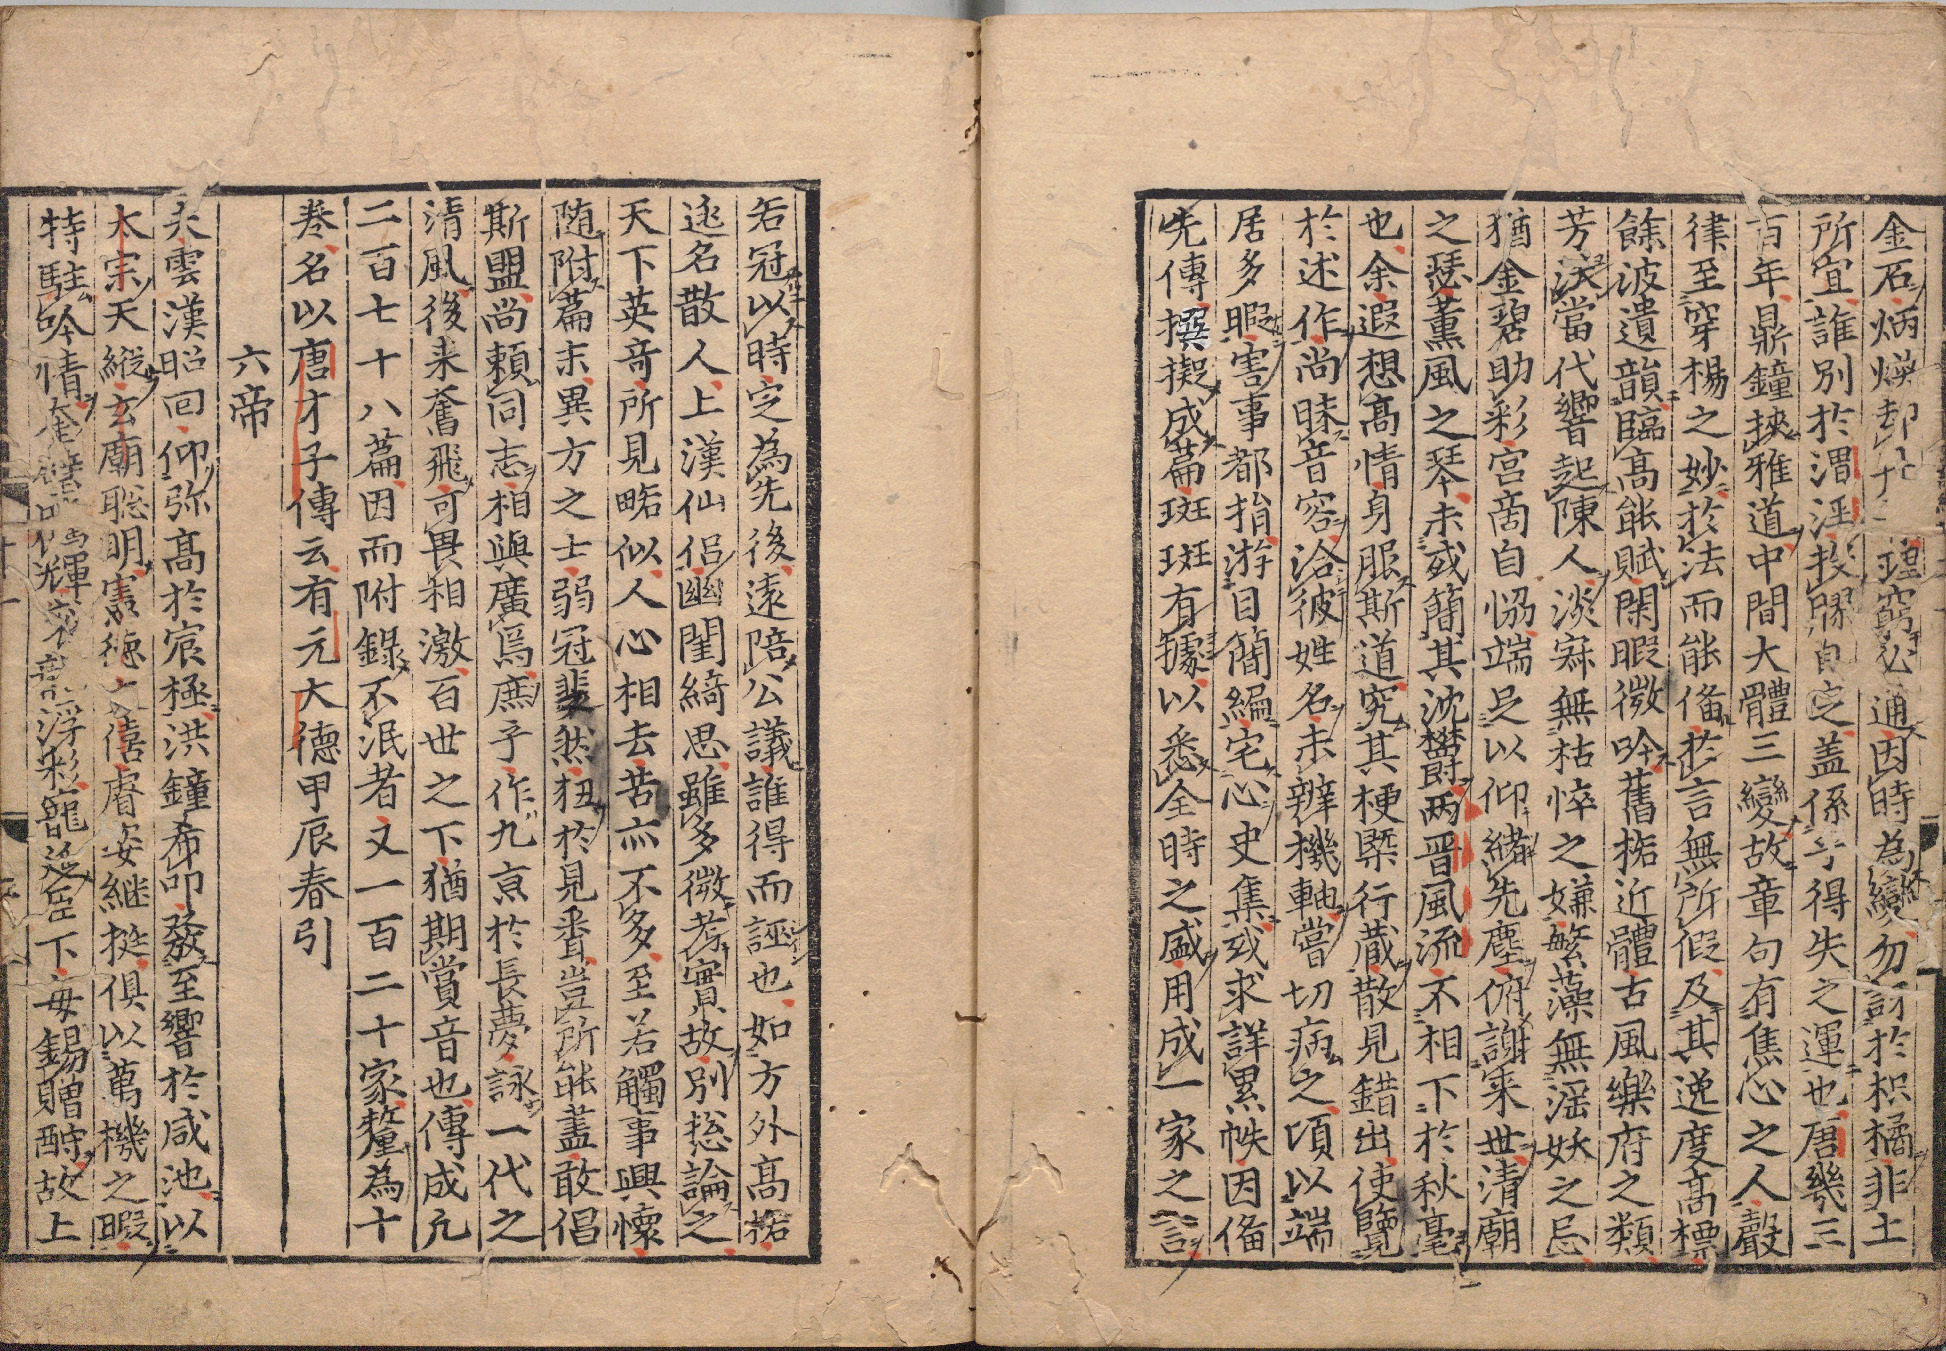 金石炳煥却
理窮必通因時為變勿訝於枳橘非土
所宜誰別於渭涇投膠自定盖係乎得失之運也唐幾三
百年鼎鐘挾雅道中間大體三變故章句有焦心之人聲
律至穿楊之妙於法而能俻於言無所假及其逸度髙標
餘波遺韻臨髙能賦閑暇微吟舊格近體古風樂府之類
芳沃當代響起陳人淡寂無枯悴之嫌繁藻無滛妖之忌
猶金碧助彩宫啇自恊端足以仰緒先塵俯謝来世清廟
之瑟薫風之琴未或簡其沈欝兩晋風流不相下於秋毫
也余遐想髙情身服斯道究其梗槩行蔵散見錯出使覽
於述作尚昧音容洽彼姓名未辨機軸嘗切病之頃以端
居多暇害事都捐游目簡編宅心史集或求詳累帙因俻
先傳撰擬成篇斑斑有據以悉全時之盛用成一家之言
若冠以時定為先後遠陪公議誰得而誣也如方外髙格
逃名散人上漢仙侣幽閨綺思雖多微考實故別捴論之
天下英竒所見畧似人心相去苦亦不多至若觸事興懷
随附篇末異方之士弱冠斐然狃於見聞豈所能盡敢倡
斯盟尚頼同志相與廣焉庶乎作九亰於長夢詠一代之
清風後来奮飛可畏相激百世之下猶期賞音也傳成凢
二百七十八篇因而附錄不泯者又一百二十家釐為十
卷名以唐才子傳云有元大徳甲辰春引
六帝
夫雲漢昭回仰弥髙於宸極洪鐘希叩發至響於咸池以
太宗天縱玄廟聡明憲徳文僖睿姿継挺俱以萬機之暇
特駐吟情奎璧
輝
浮彩寵延臣下毎錫贈酧故上